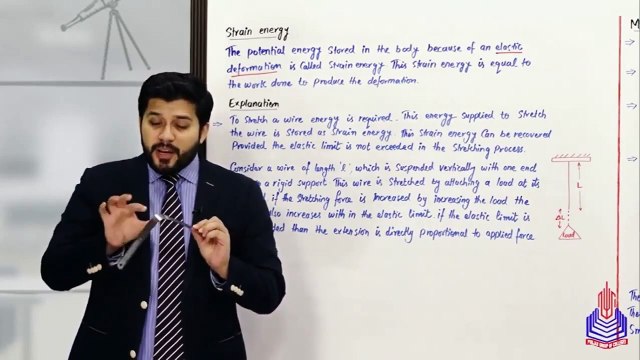 Strain energy
The potential energy stored in the body because of an elastic
deformation is called strain energy. This strain energy is equal to
the work done to produce the deformation.
Explanation
⇒ To stretch a wire energy is required. This energy supplied to stretch
the wire is stored as strain energy. This strain energy can be recovered
Provided the elastic limit is not exceeded in the stretching process.
Consider a wire of length 'l', which is suspended vertically with one end
a rigid support. This wire is stretched by attaching a load at its
if the stretching force is increased by increasing the load the
also increases with in the elastic limit. if the elastic limit is
than the extension is directly proportional to applied force
L
ΔL
Load
M
The
The
Sm